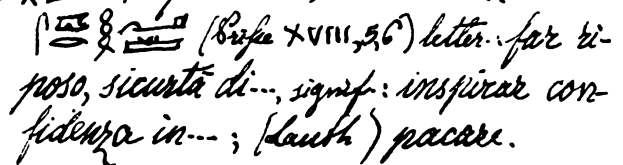 (Prisse XVIII, 5, 6) letter.: far ri-
poso, sicurtà di..., signif.: inspirar con-
fidenza in...; (Lauth) pacare.